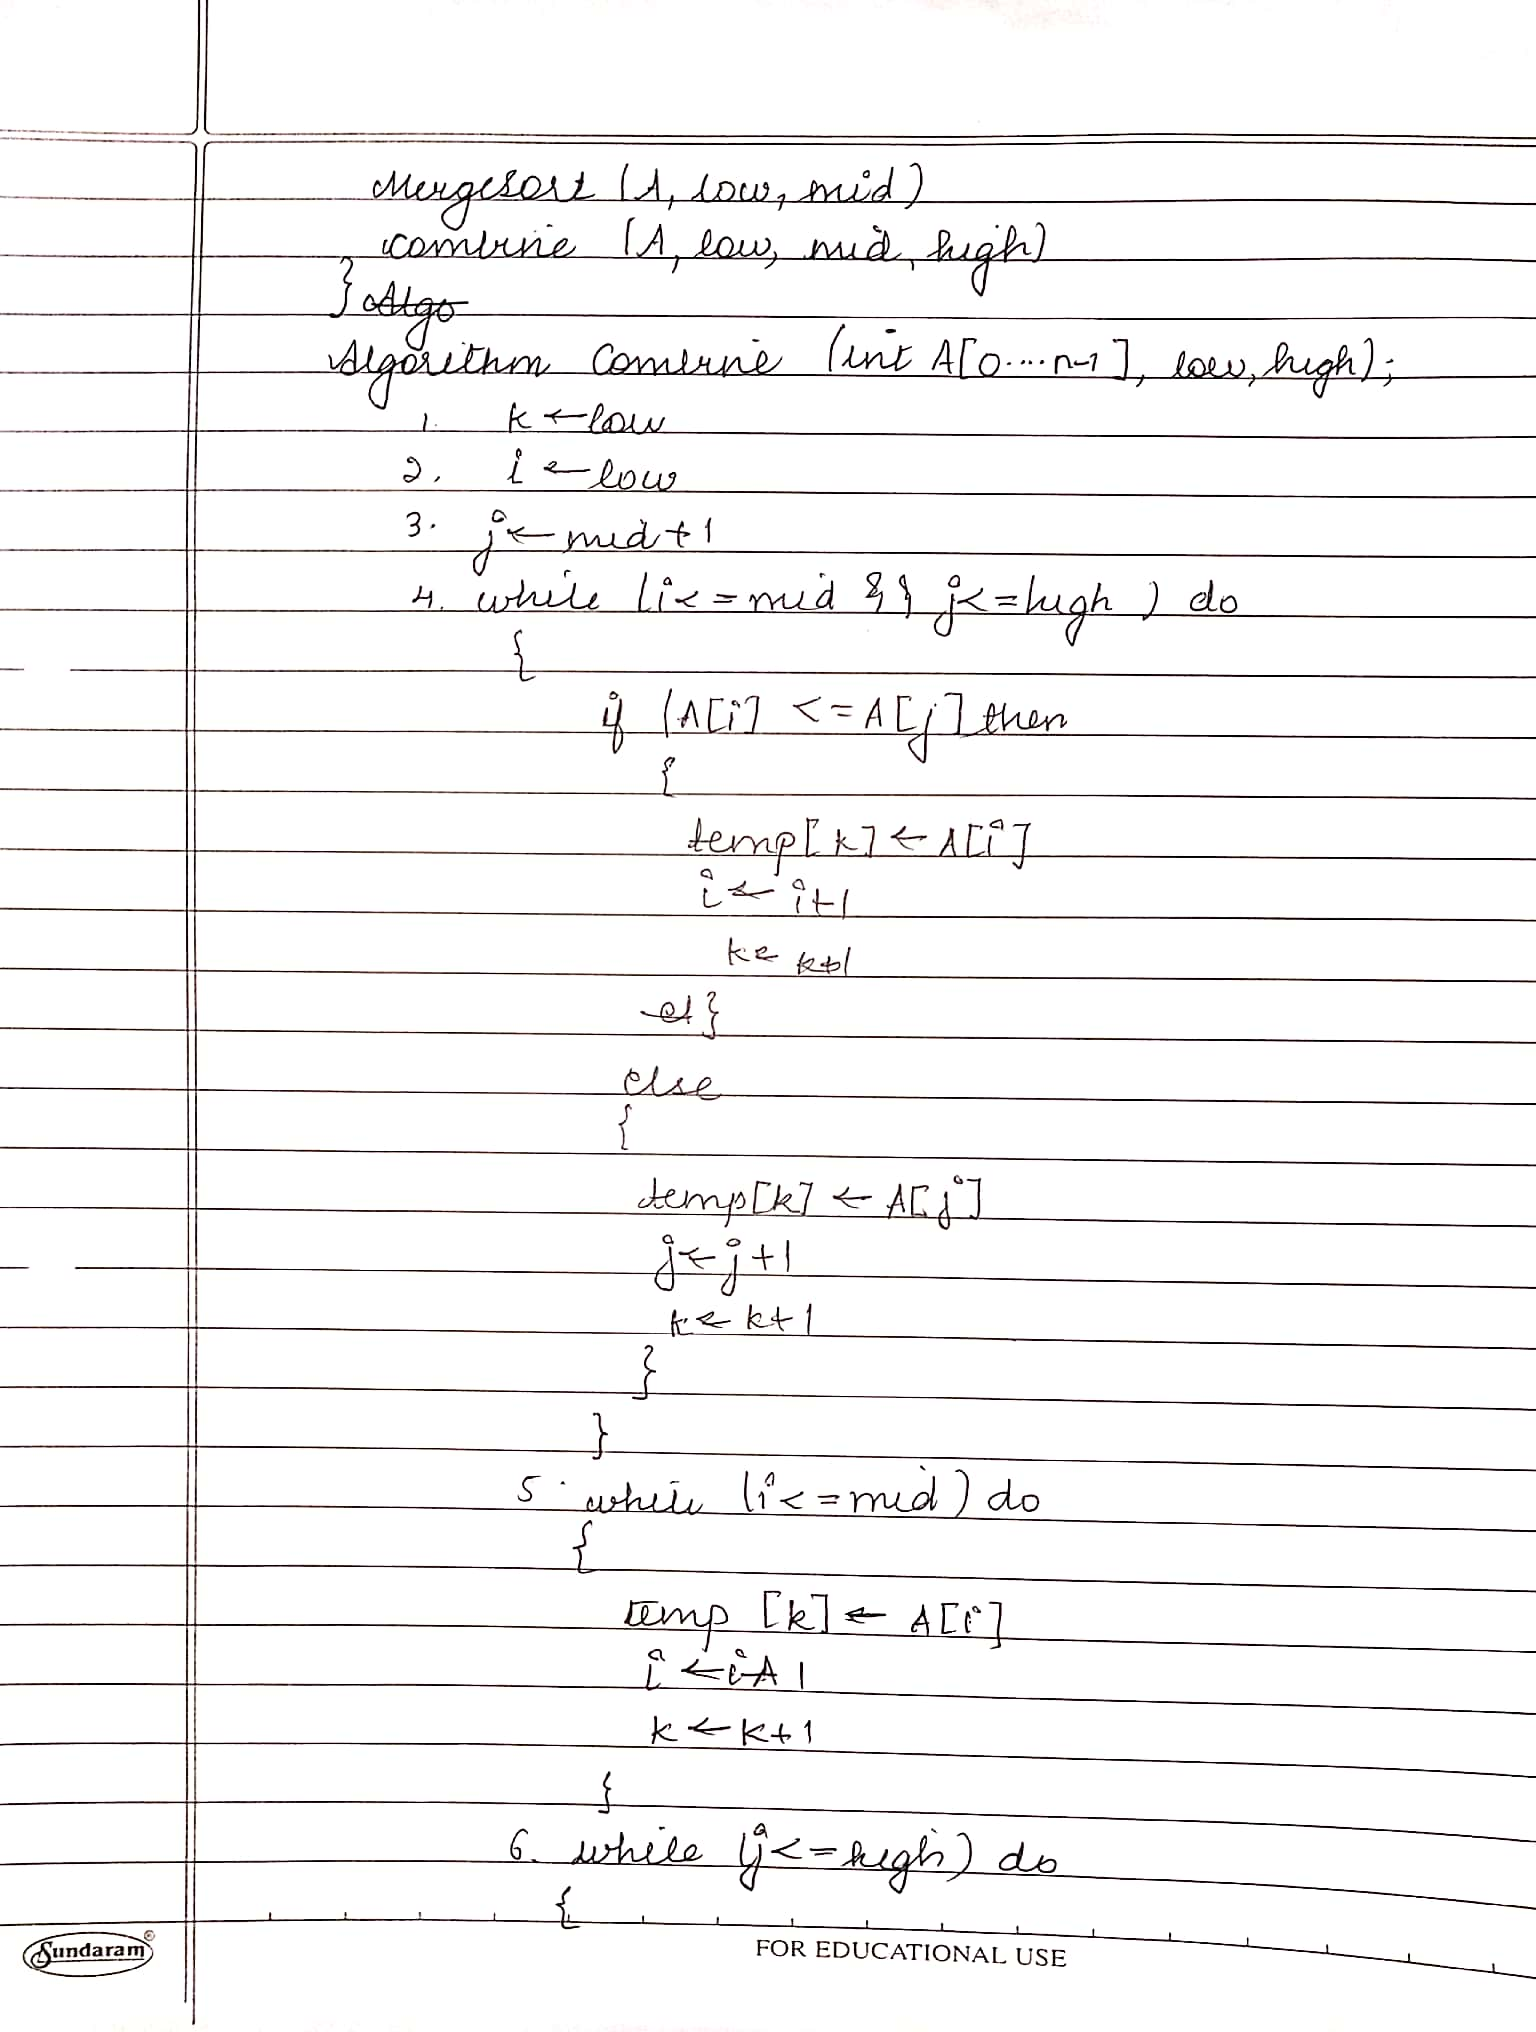 Mergesort (A, low, mid)
combine (A, low, mid, high)
} Algo
Algorithm Combine (int A[0....n-1], low, high);
1. k ← low
2. i ← low
3. j ← mid + 1
4. while (i <= mid && j <= high ) do
{
if (A[i] <= A[j] then
{
temp[k] ← A[i]
i ← i+1
k ← k+1
el }
else
{
temp[k] ← A[j]
j ← j+1
k ← k+1
}
}
5. while (i <= mid) do
{
temp [k] ← A[i]
i ← i+1
k ← k+1
}
6. while (j <= high) do
{
Sundaram®
FOR EDUCATIONAL USE